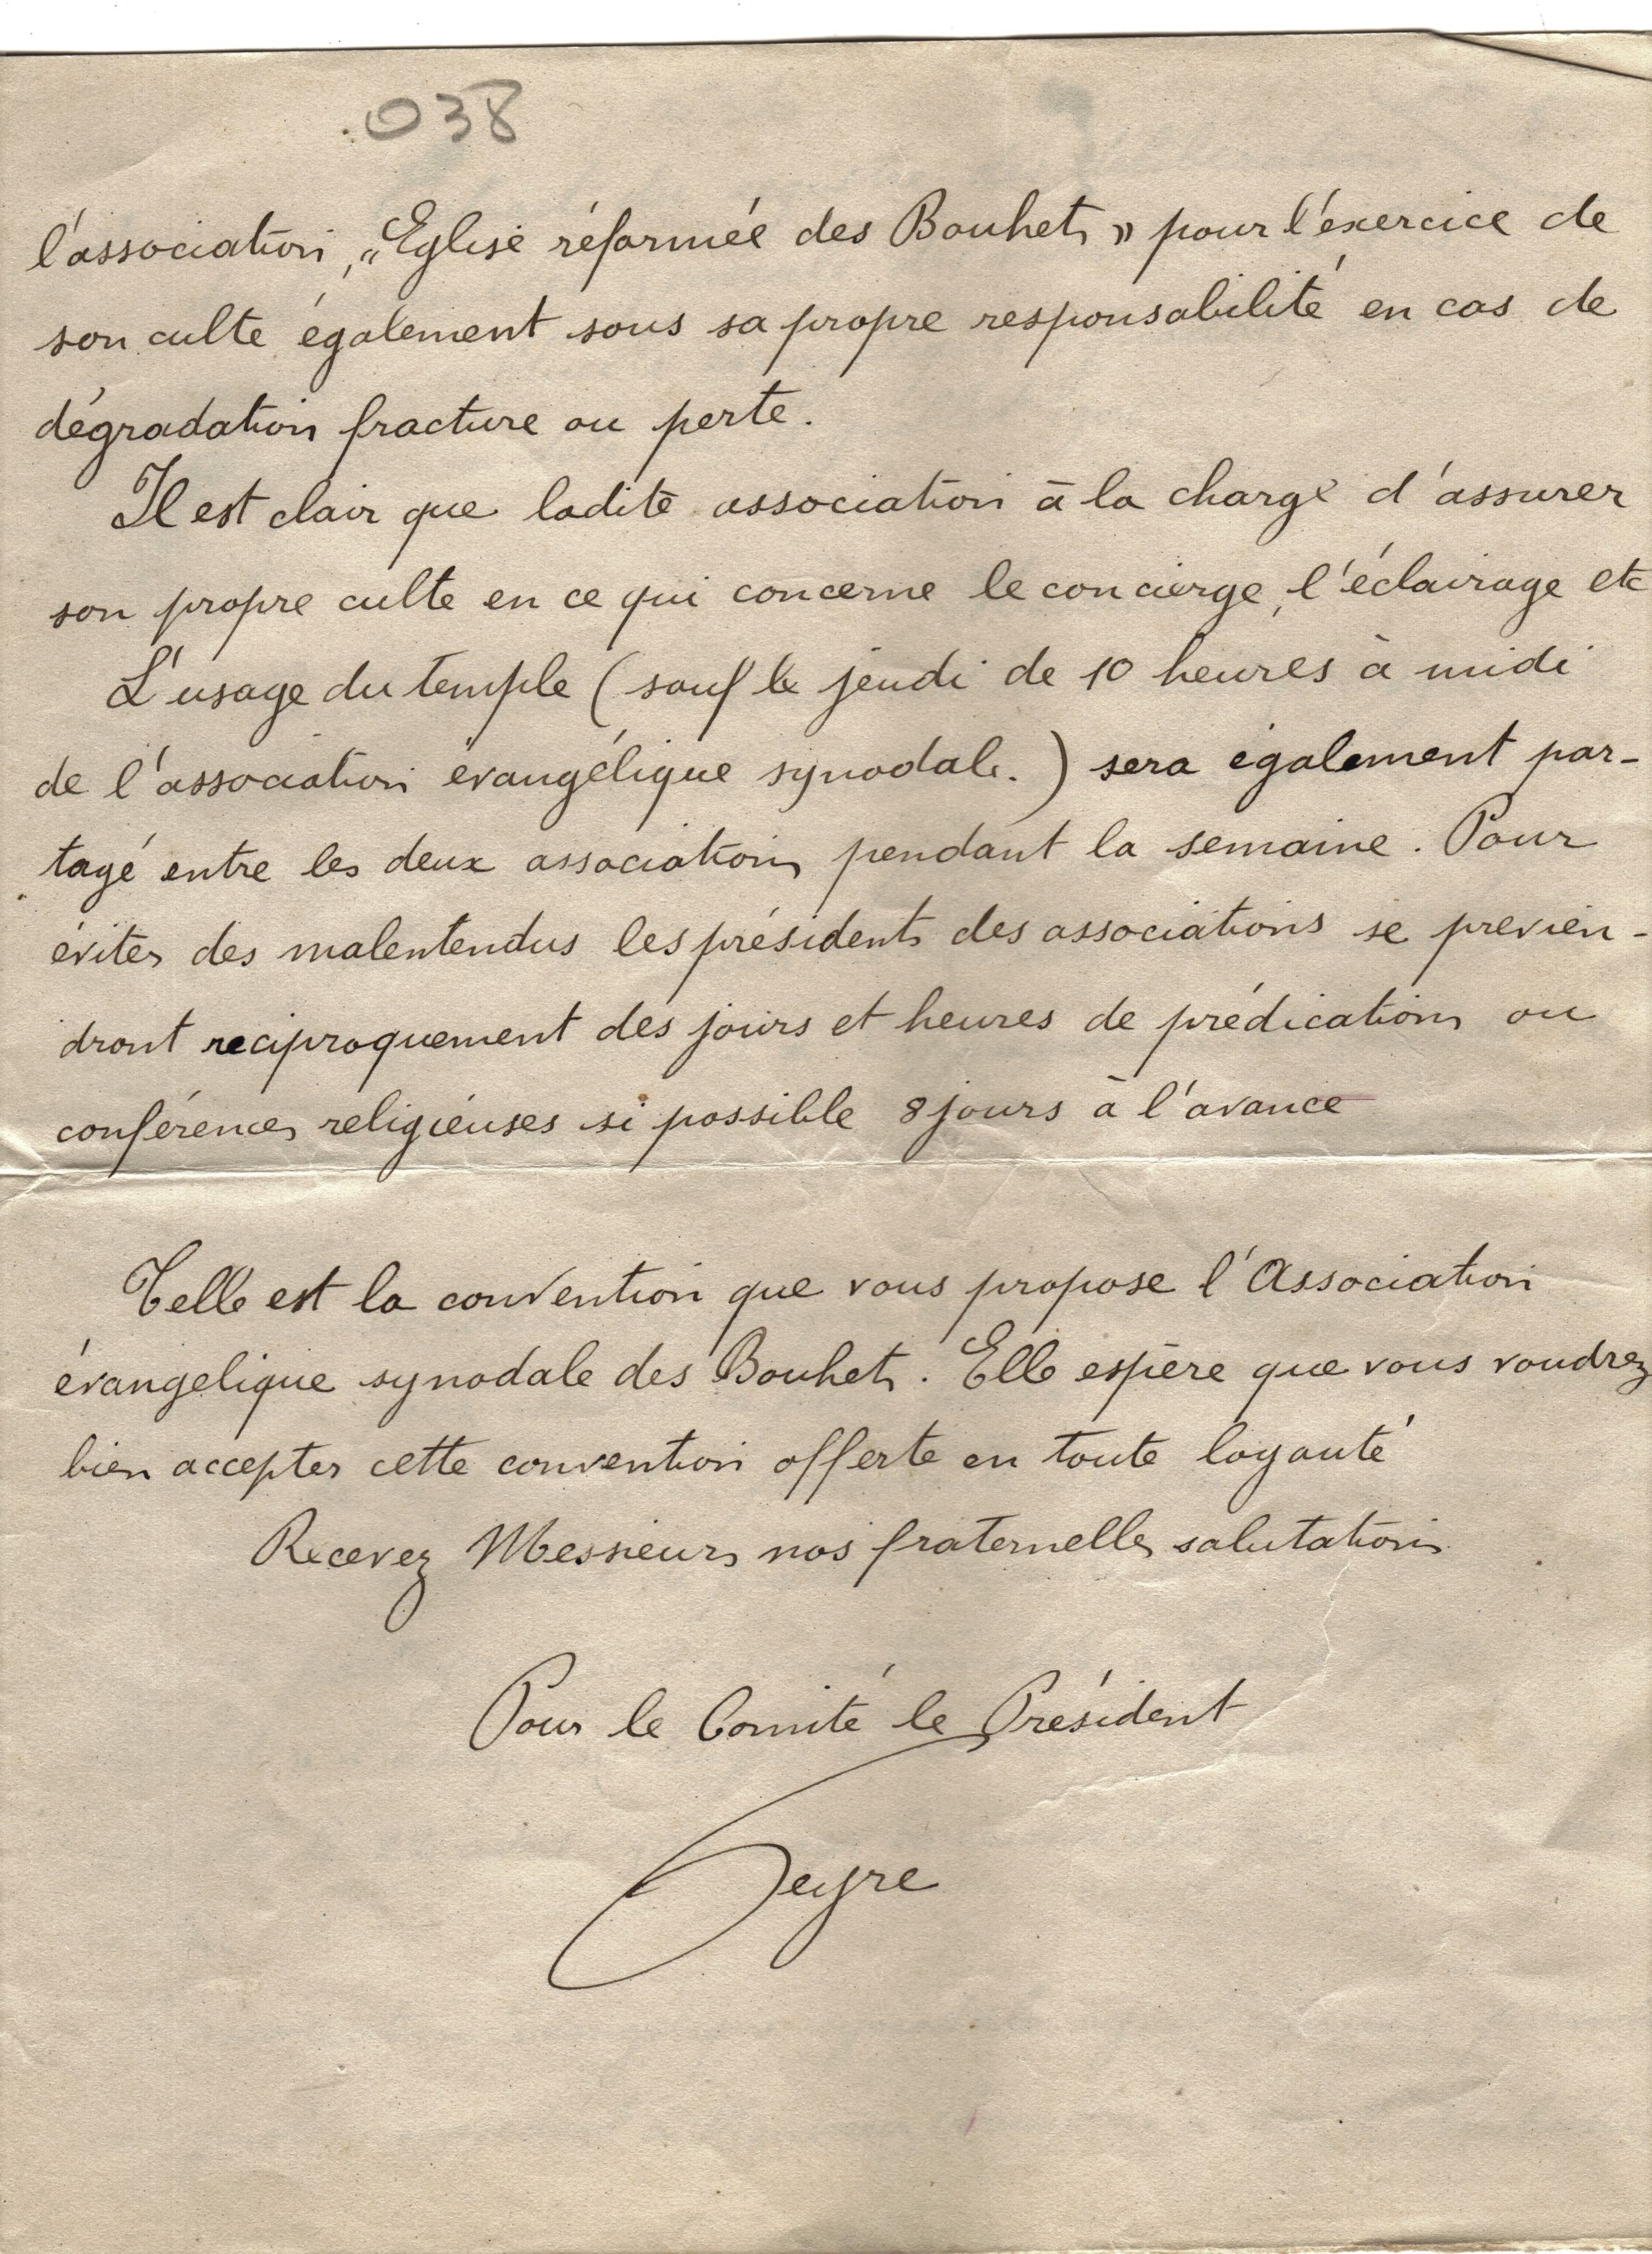 038
l'association, « Eglise réformée des Bouhets » pour l'éxercice de
son culte également sous sa propre responsabilité en cas de
dégradation fracture ou perte.
Il est clair que ladite association à la charge d'assurer
son propre culte en ce qui concerne le concierge, l'éclairage etc
L'usage du temple (sauf le jeudi de 10 heures à midi
de l'association évangélique synodale.) sera également par-
tagé entre les deux associations pendant la semaine. Pour
éviter des malentendus les présidents des associations se previen-
dront reciproquement des jours et heures de prédications ou
conférences religieuses si possible 8 jours à l'avance
Telle est la convention que vous propose l'Association
évangelique synodale des Bouhets. Elle espère que vous voudrez
bien accepter cette convention offerte en toute loyauté
Recevez Messieurs nos fraternelles salutations
Pour le Comité le Président